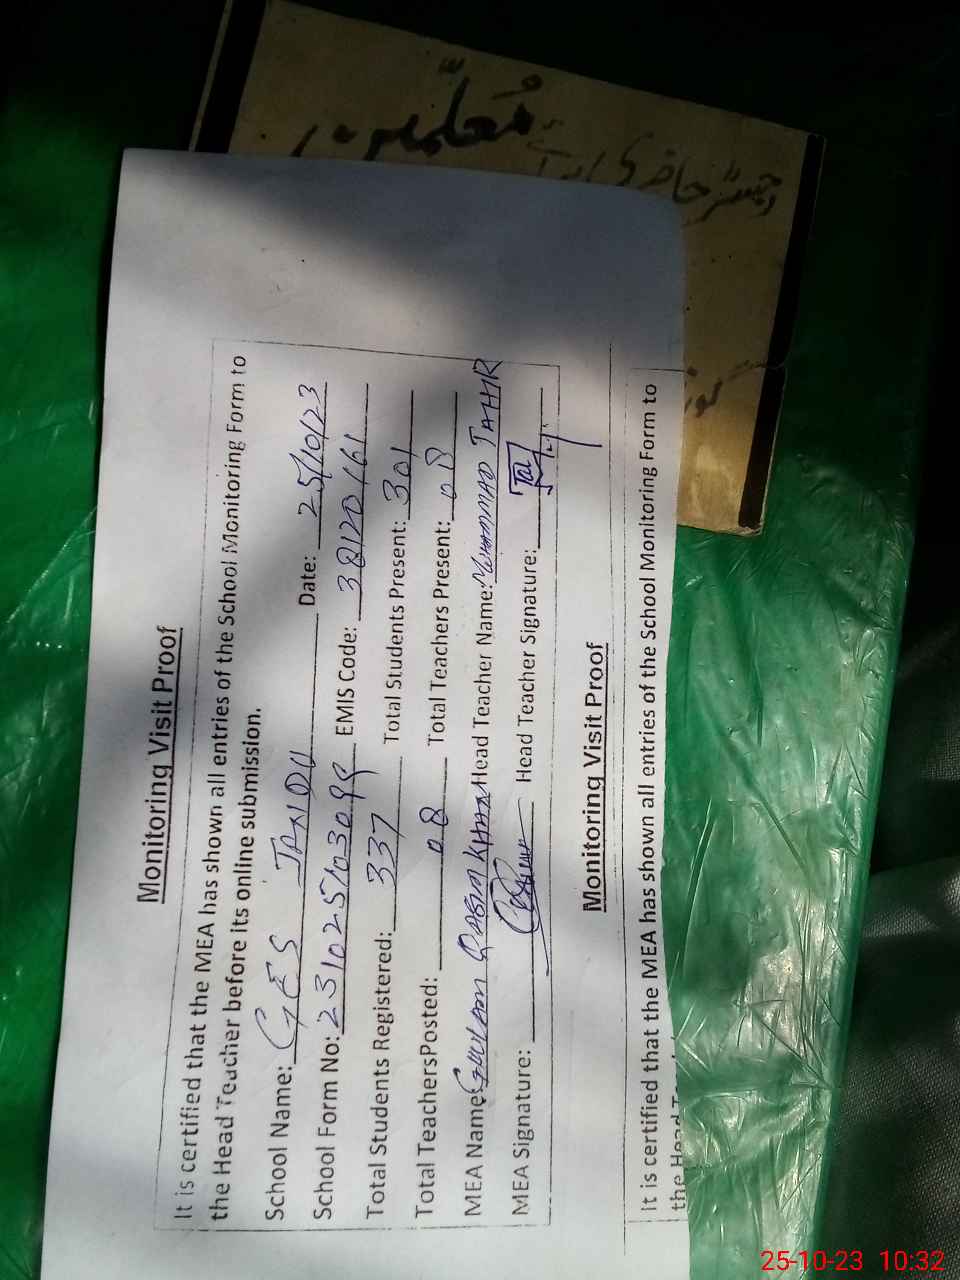 مُعلّمین
رجسٹر حاضری برائے
Monitoring Visit Proof
It is certified that the MEA has shown all entries of the School Monitoring Form to
the Head Teacher before its online submission.
School Name: GES JANDU Date: 25/10/23
School Form No: 231025103099 EMIS Code: 38120161
Total Students Registered: 337 Total Students Present: 301
Total TeachersPosted: 08 Total Teachers Present: 08
MEA Name: GHULAM QASIM KHAN Head Teacher Name: MUHAMMAD TAHIR
MEA Signature: Head Teacher Signature:
Monitoring Visit Proof
It is certified that the MEA has shown all entries of the School Monitoring Form to
the Head
25-10-23 10:32